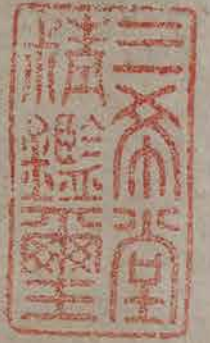 三希堂
精鑑璽